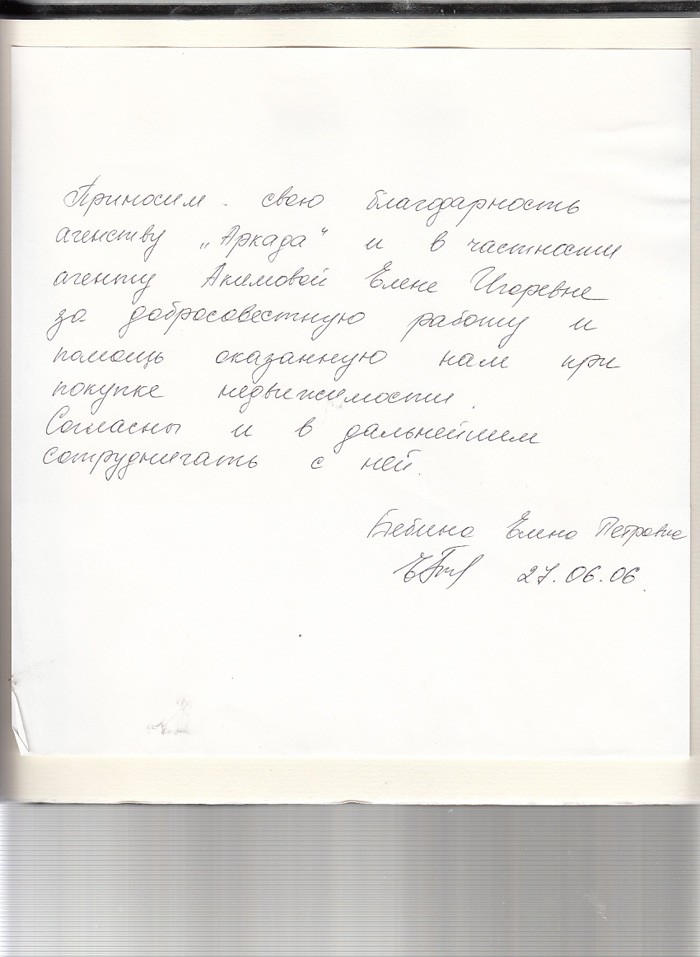 Приносим свою благодарность
агенству „Аркада“ и в частности
агенту Акимовой Елене Игоревне
за добросовестную работу и
помощь оказанную нам при
покупке недвижимости.
Согласны и в дальнейшем
сотрудничать с ней.
Елена Петровна
27.06.06.